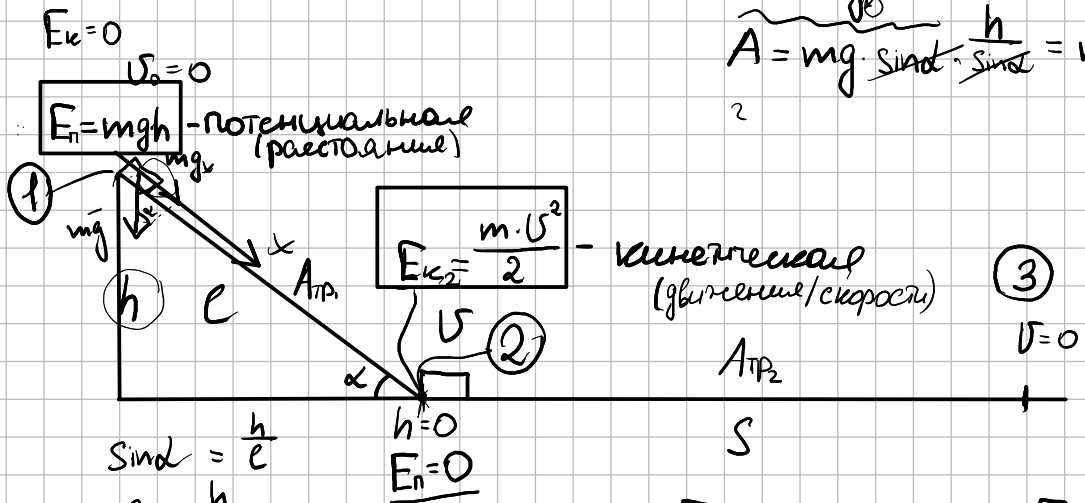 Eк=0
υ₀=0
Eп=mgh - потенциальная
(расстояния)
A = mg · sinα · h/sinα =
2
1
mgx
mg
x
h
l
Aтр₁
Eк₂ = m·υ²/2 - кинетическая
(движения/скорости)
3
υ=0
υ
2
Aтр₂
α
h=0
S
sinα = h/l
Eп=0
h